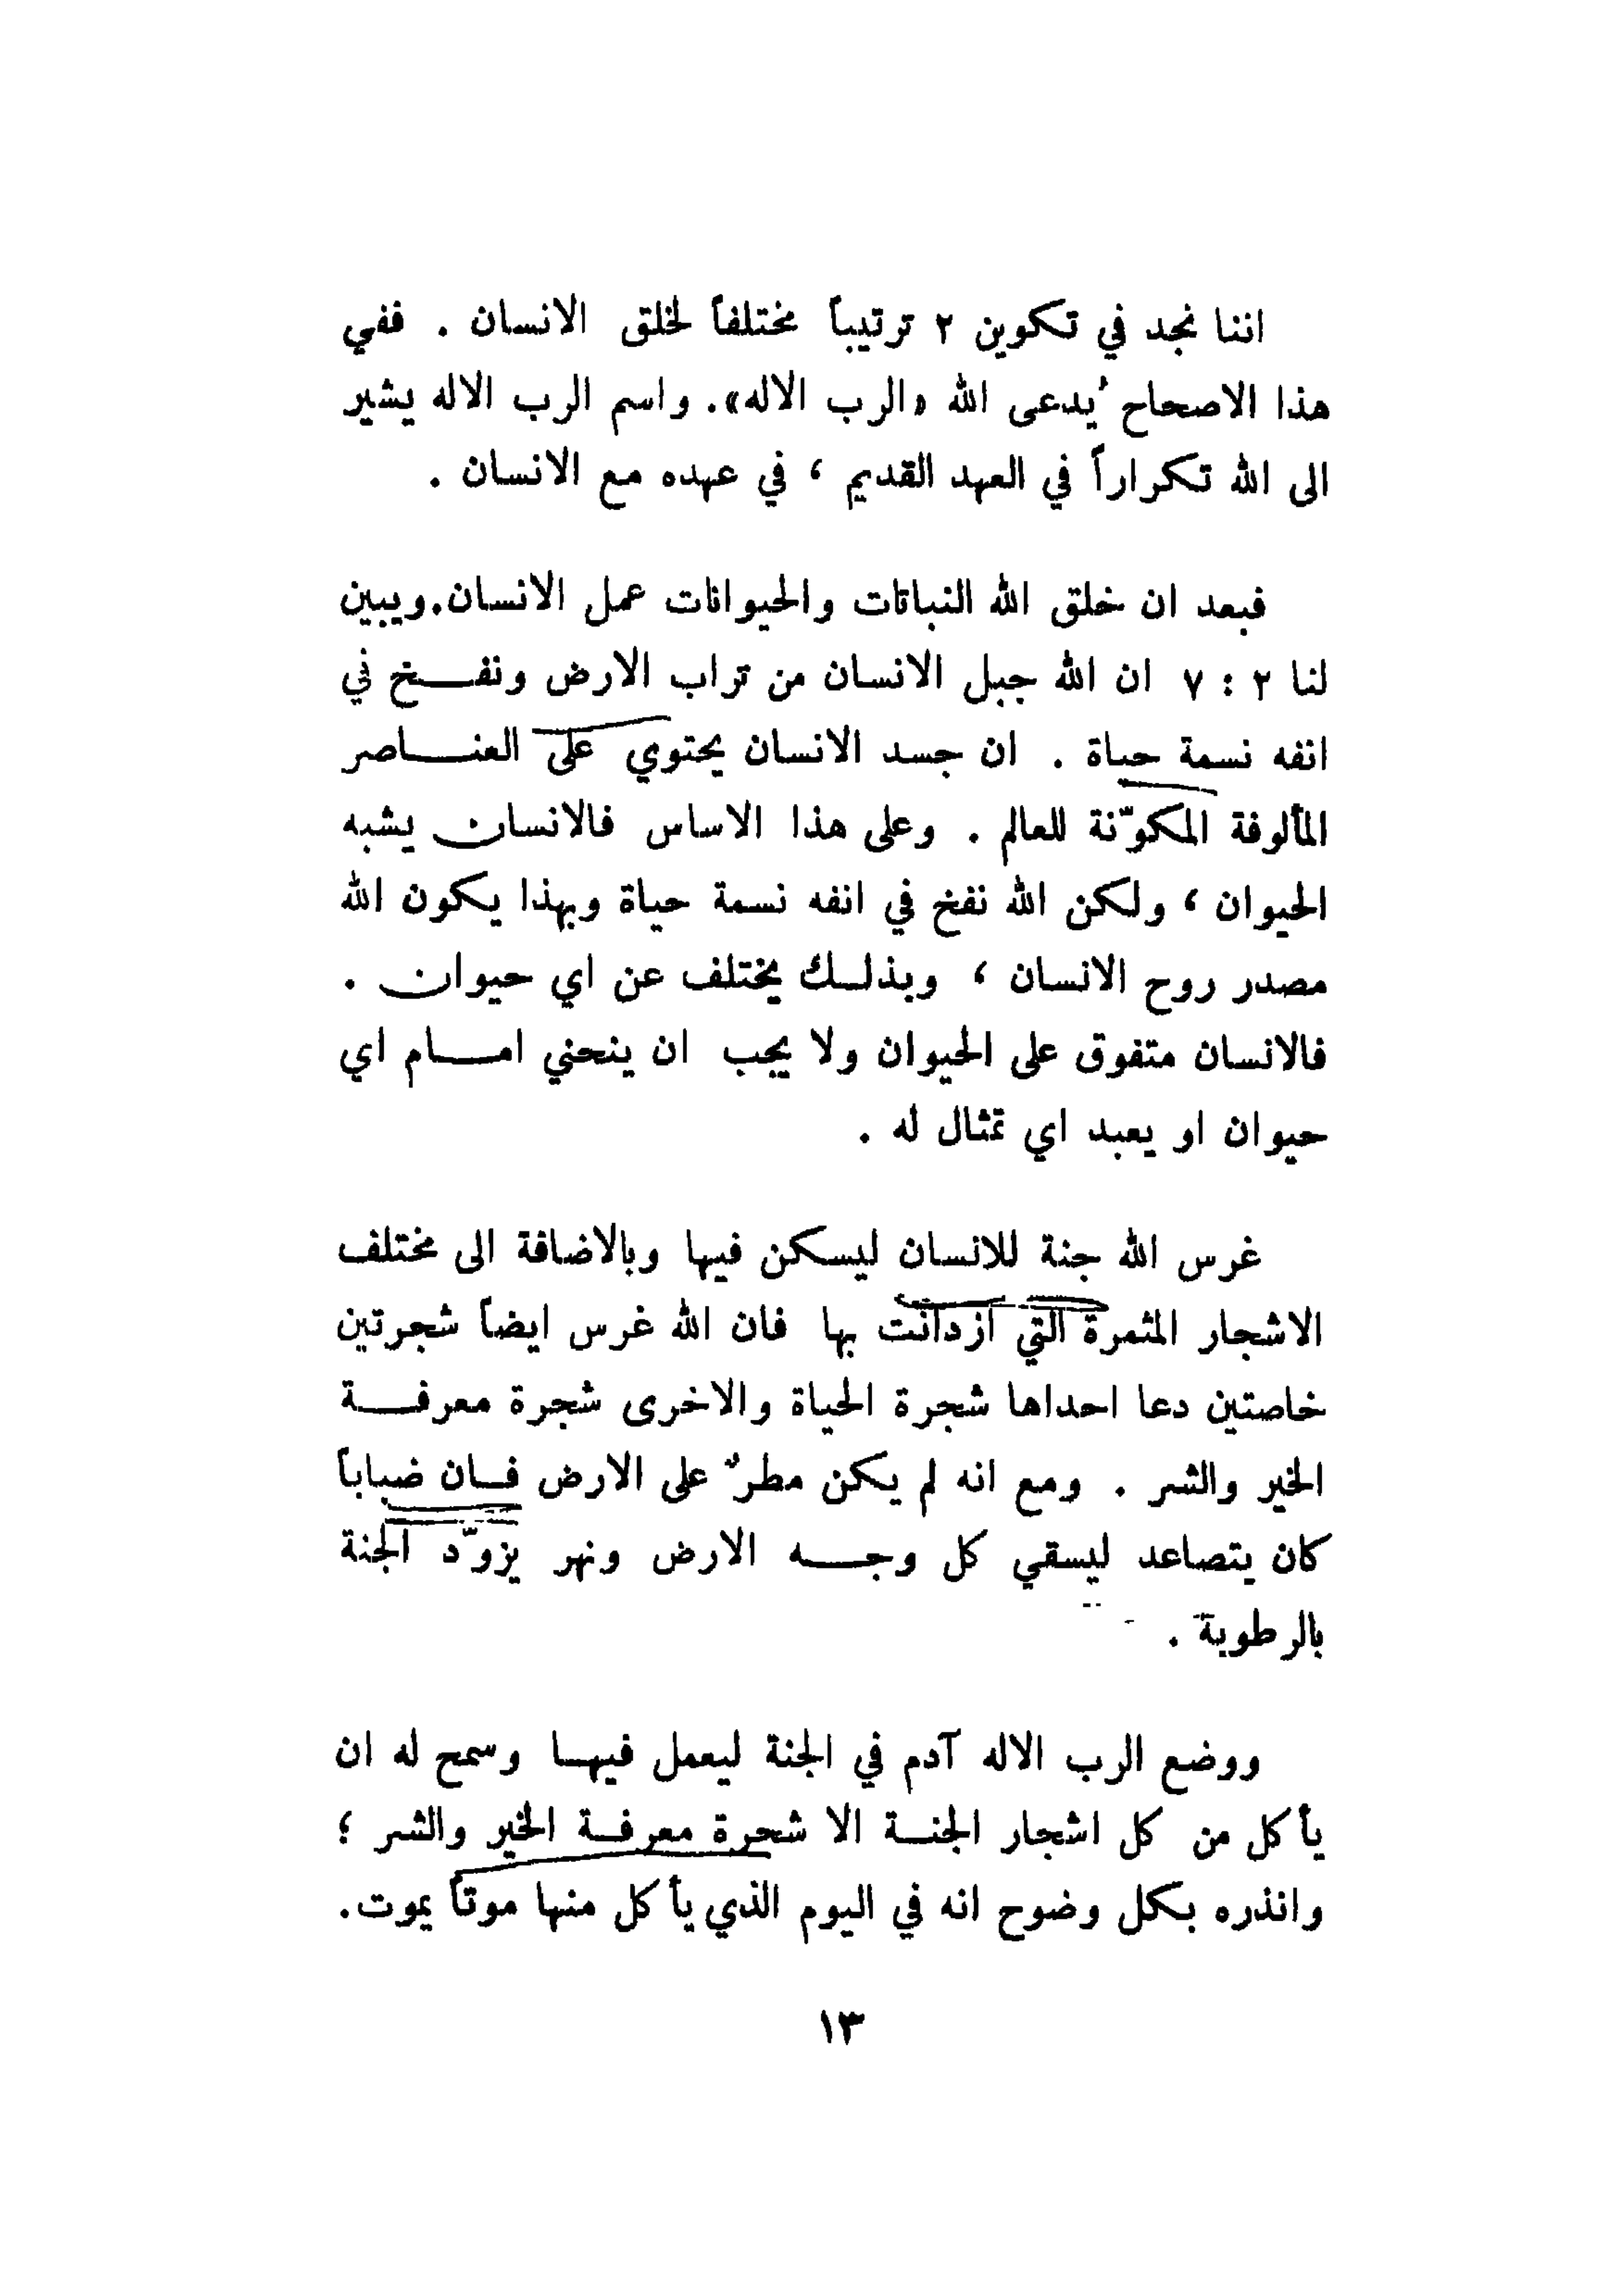 اننا نجد في تكوين ٢ ترتيباً مختلفاً لخلق الانسان . ففي
هذا الاصحاح يُدعى الله «الرب الاله». واسم الرب الاله يشير
الى الله تكراراً في العهد القديم ، في عهده مع الانسان .
فبعد ان خلق الله النباتات والحيوانات عمل الانسان.ويبين
لنا ٢ : ٧ ان الله جبل الانسان من تراب الارض ونفـخ في
انفه نسمة حياة . ان جسد الانسان يحتوي على العنـاصر
المألوفة المكوّنة للعالم . وعلى هذا الاساس فالانسان يشبه
الحيوان ، ولكن الله نفخ في انفه نسمة حياة وبهذا يكون الله
مصدر روح الانسان ، وبذلـك يختلف عن اي حيوان .
فالانسان متفوق على الحيوان ولا يجب ان ينحني امـام اي
حيوان او يعبد اي تمثال له .
غرس الله جنة للانسان ليسكن فيها وبالاضافة الى مختلف
الاشجار المثمرة التي ازدانت بها فان الله غرس ايضاً شجرتين
خاصتين دعا احداها شجرة الحياة والاخرى شجرة معرفـة
الخير والشر . ومع انه لم يكن مطرٌ على الارض فـان ضباباً
كان يتصاعد ليسقي كل وجـه الارض ونهر يزوّد الجنة
بالرطوبة .
ووضع الرب الاله آدم في الجنة ليعمل فيهـا وسمح له ان
يأكل من كل اشجار الجنـة الا شجرة معرفـة الخير والشر ؛
وانذره بكل وضوح انه في اليوم الذي يأكل منها موتاً يموت.
١٣